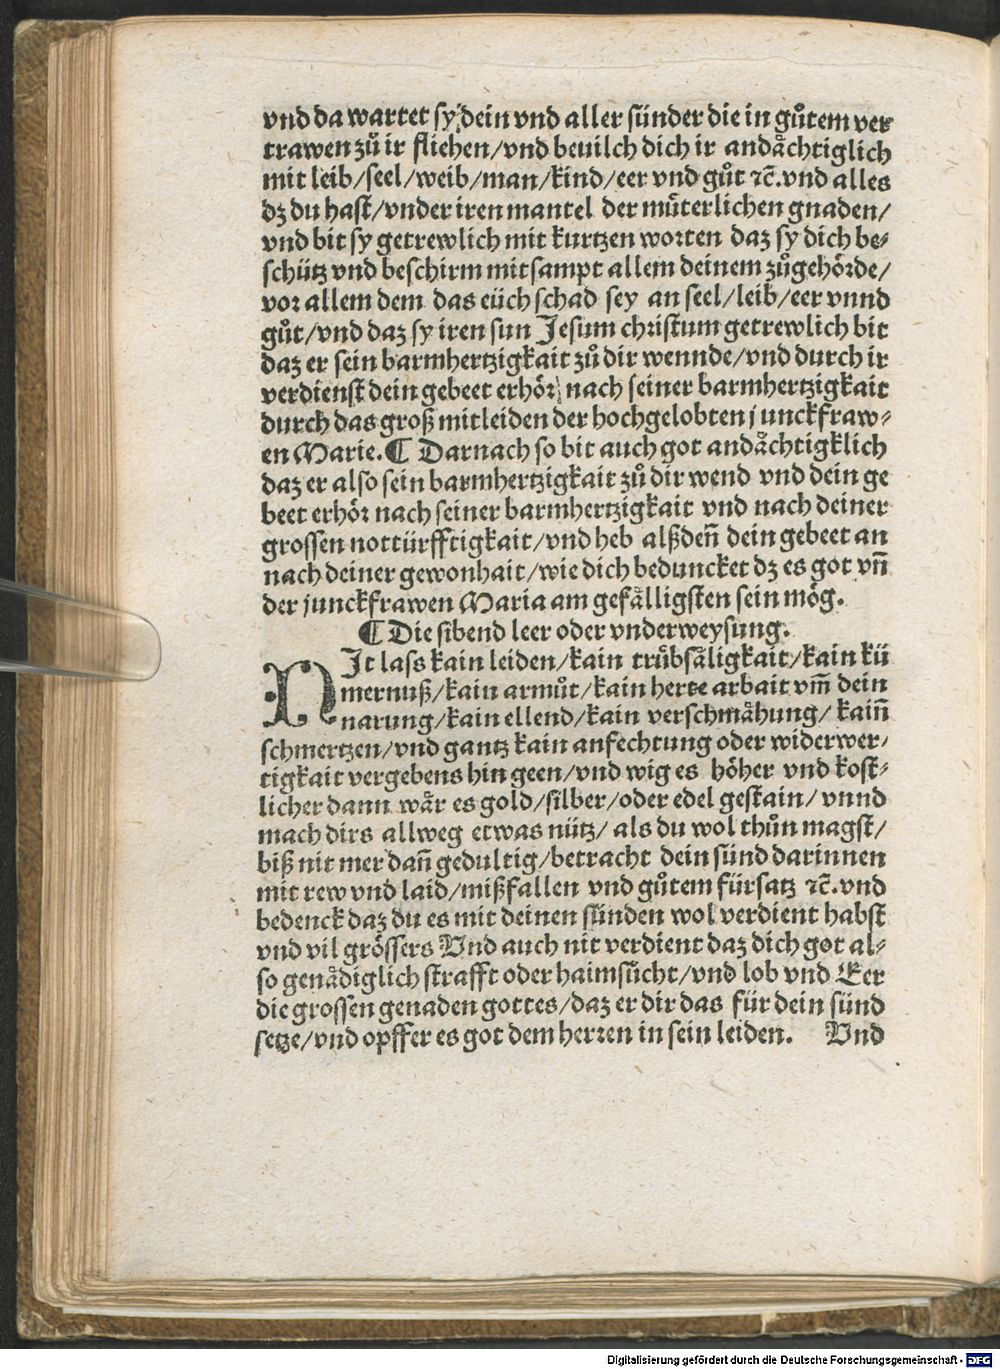 vnd da wartet sy dein vnd aller sünder die in gůtem ver
trawen zů ir fliehen/vnd beuilch dich ir andåchtiglich
mit leib/seel/weib/man/kind/eer vnd gůt ꝛc̄.vnd alles
dz du hast/vnder iren mantel der můterlichen gnaden/
vnd bit sy getrewlich mit kurtzen worten daz sy dich be⸗
schütz vnd beschirm mitsampt allem deinem zůgehörde/
vor allem dem das eüch schad sey an seel/leib/eer vnnd
gůt/vnd daz sy iren sun Jesum christum getrewlich bit
daz er sein barmhertzigkait zů dir wennde/vnd durch ir
verdienst dein gebeet erhör/ nach seiner barmhertzigkait
durch das groß mitleiden der hochgelobten junckfraw⸗
en Marie.¶ Darnach so bit auch got andåchtigklich
daz er also sein barmhertzigkait zů dir wend vnd dein ge
beet erhör nach seiner barmhertzigkait vnd nach deiner
grossen nottürfftigkait/vnd heb alßdeñ dein gebeet an
nach deiner gewonhait/wie dich beduncket dz es got vñ
der junckfrawen Maria am gefålligsten sein mög.
¶ Die sibend leer oder vnderweysung.
NJt lass kain leiden/kain trůbsåligkait/kain kü
mernuß/kain armůt/kain herte arbait vm̃ dein
narung/kain ellend/kain verschmåhung/kaiñ
schmertzen/vnd gantz kain anfechtung oder widerwer⸗
tigkait vergebens hin geen/vnd wig es höher vnd kost⸗
licher dann wår es gold/silber/oder edel gestain/vnnd
mach dirs allweg etwas nütz/als du wol thůn magst/
biß nit mer dañ gedultig/betracht dein sünd darinnen
mit rew vnd laid/mißfallen vnd gůtem fürsatz ꝛc̄.vnd
bedenck daz du es mit deinen sünden wol verdient habst
vnd vil grössers Vnd auch nit verdient daz dich got al⸗
so genådiglich strafft oder haimsůcht/vnd lob vnd Eer
die grossen genaden gottes/daz er dir das für dein sünd
setze/vnd opffer es got dem herren in sein leiden. Vnd
Digitalisierung gefördert durch die Deutsche Forschungsgemeinschaft - DFG